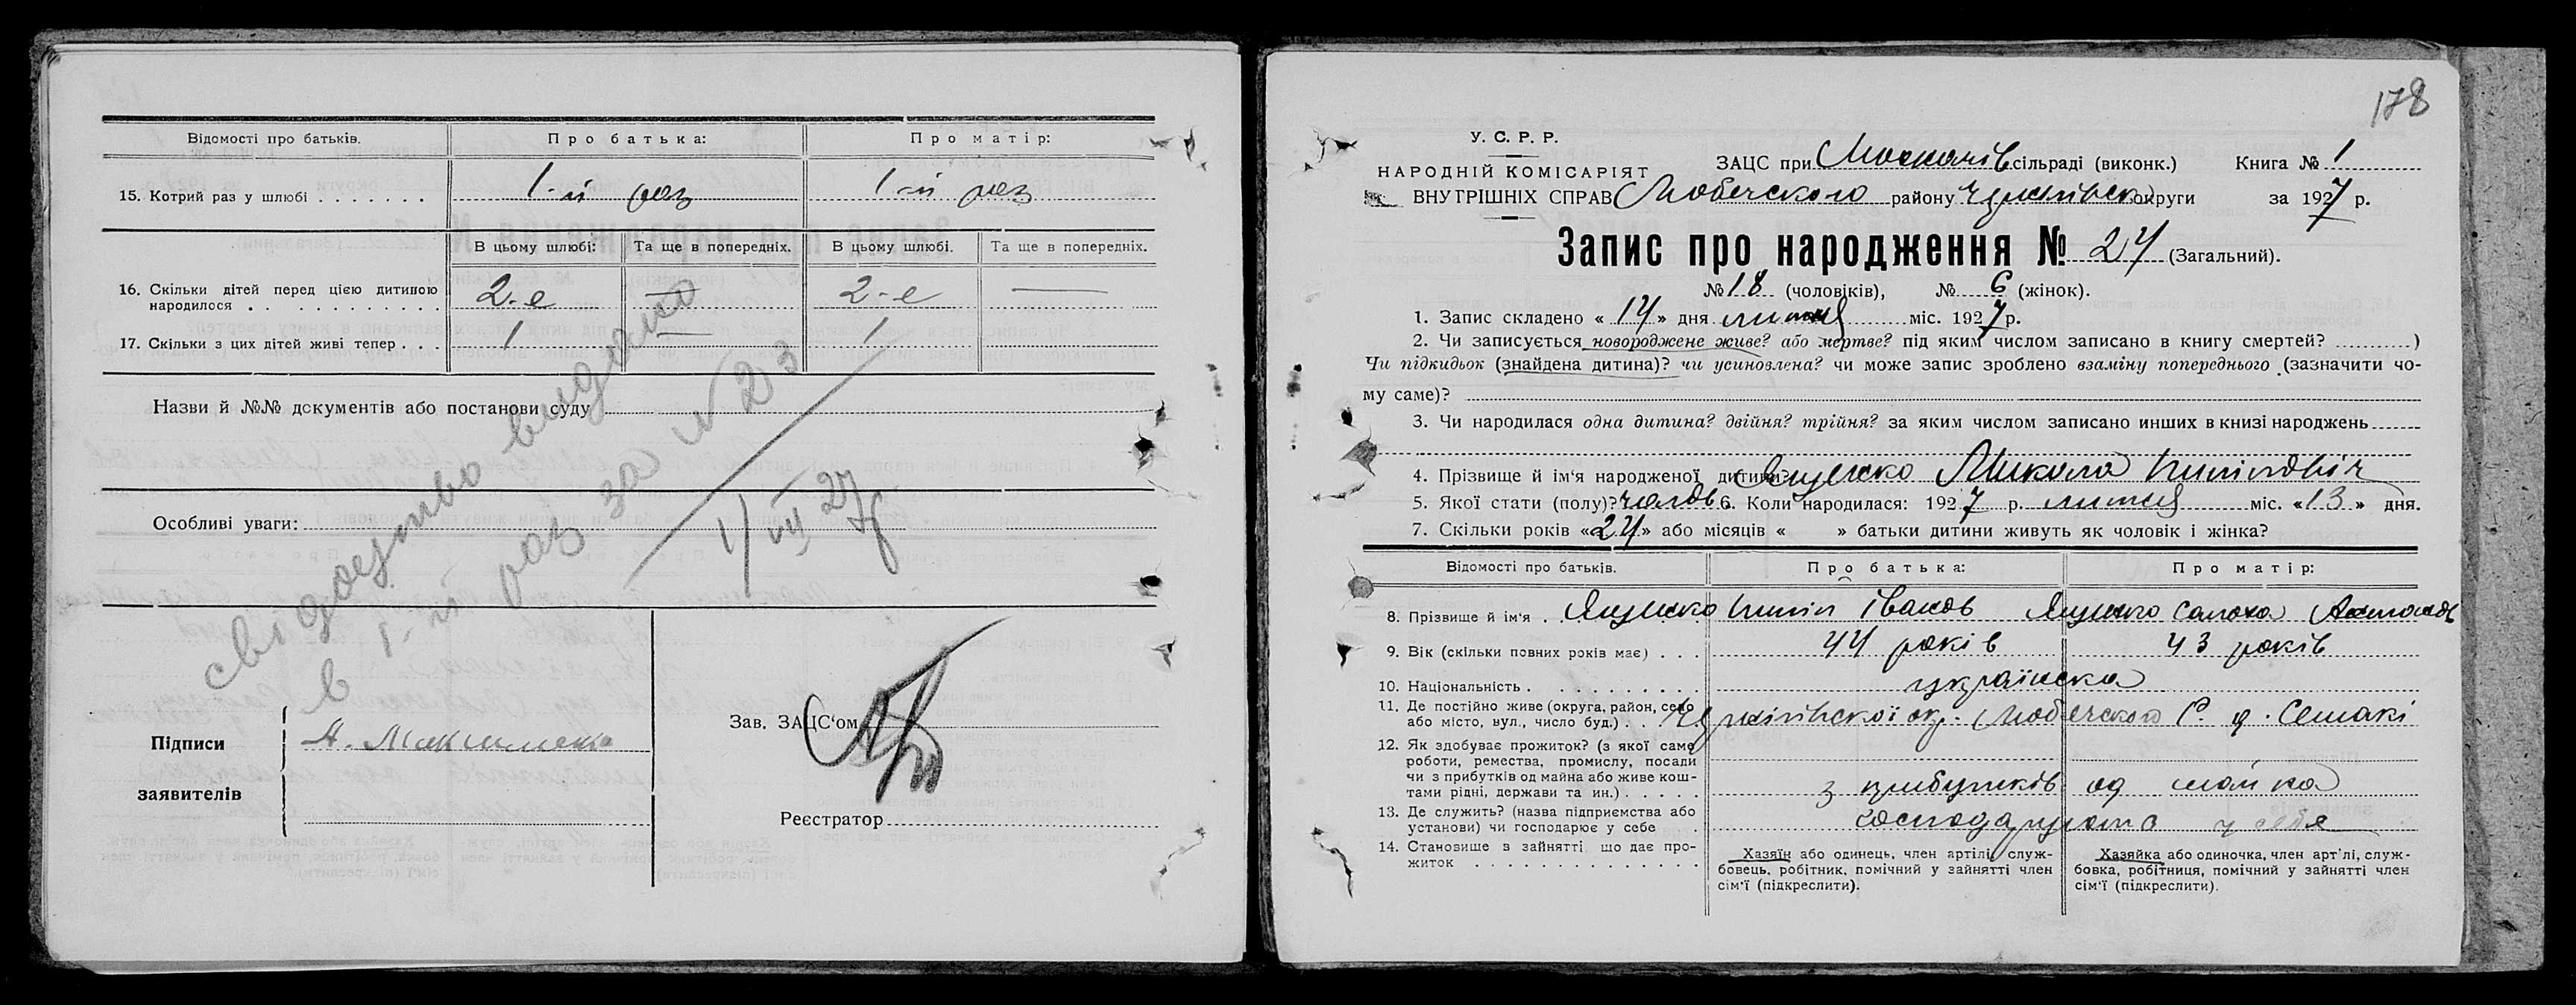 Відомості про батьків. Про батька: Про матір:
15. Котрий раз у шлюбі . . . . . . . 1-й раз 1-й раз
В цьому шлюбі: Та ще в попередніх. В цьому шлюбі. Та ще в попередніх.
16. Скільки дітей перед цією дитиною народилося . . . . . . . . . . . 2-е — 2-е —
17. Скільки з цих дітей живі тепер . . . 1 — 1
Назви й №№ документів або постанови суду
Особливі уваги:
свідоцтво видано
в 1-й раз за № 23
1/VII 27
Підписи заявителів
Зав. ЗАЦС'ом
Реєстратор
178
У. С. Р. Р.
НАРОДНІЙ КОМІСАРІЯТ
ВНУТРІШНІХ СПРАВ
ЗАЦС при сільраді (виконк.) Книга № 1
Любечского району Чернігівськ округи за 1927 р.
Запис про народження № 24 (Загальний).
№ 18 (чоловіків), № 6 (жінок).
1. Запис складено « 14 » дня липня міс. 1927 р.
2. Чи записується новороджене живе? або мертве? під яким числом записано в книгу смертей? )
Чи підкидьок (знайдена дитина)? чи усиновлена? чи може запис зроблено взаміну попереднього (зазначити чо-
му саме)?
3. Чи народилася одна дитина? двійня? трійня? за яким числом записано инших в книзі народжень
4. Прізвище й ім'я народженої дитини Ященко Микола Пилипович
5. Якої стати (полу)? чолов 6. Коли народилася: 1927 р. липня міс. «13» дня.
7. Скільки років «24» або місяців « » батьки дитини живуть як чоловік і жінка?
Відомості про батьків. Про батька: Про матір:
8. Прізвище й ім'я . Ященко Пилип Іванов Ященко Солоха
9. Вік (скільки повних років має) . . . 44 років 43 років
10. Національність . . . . . . . . . . українска
11. Де постійно живе (округа, район, село або місто, вул., число буд.) . . Чернігівскої окр. Любечского Р. Семакі
12. Як здобуває прожиток? (з якої саме роботи, ремества, промислу, посади чи з прибутків од майна або живе кош-
тами рідні, держави та ин.) . . . . . з прибутків од майна
13. Де служить? (назва підприємства або установи) чи господарює у себе . у себе
14. Становище в зайнятті що дає про-
житок . . . . . . . . . . . . . .
Хазяїн або одинець, член артілі, служ-
бовець, робітник, помічний у зайнятті член
сім'ї (підкреслити).
Хазяйка або одиночка, член арт'лі, служ-
бовка, робітниця, помічний у зайнятті член
сім'ї (підкреслити).